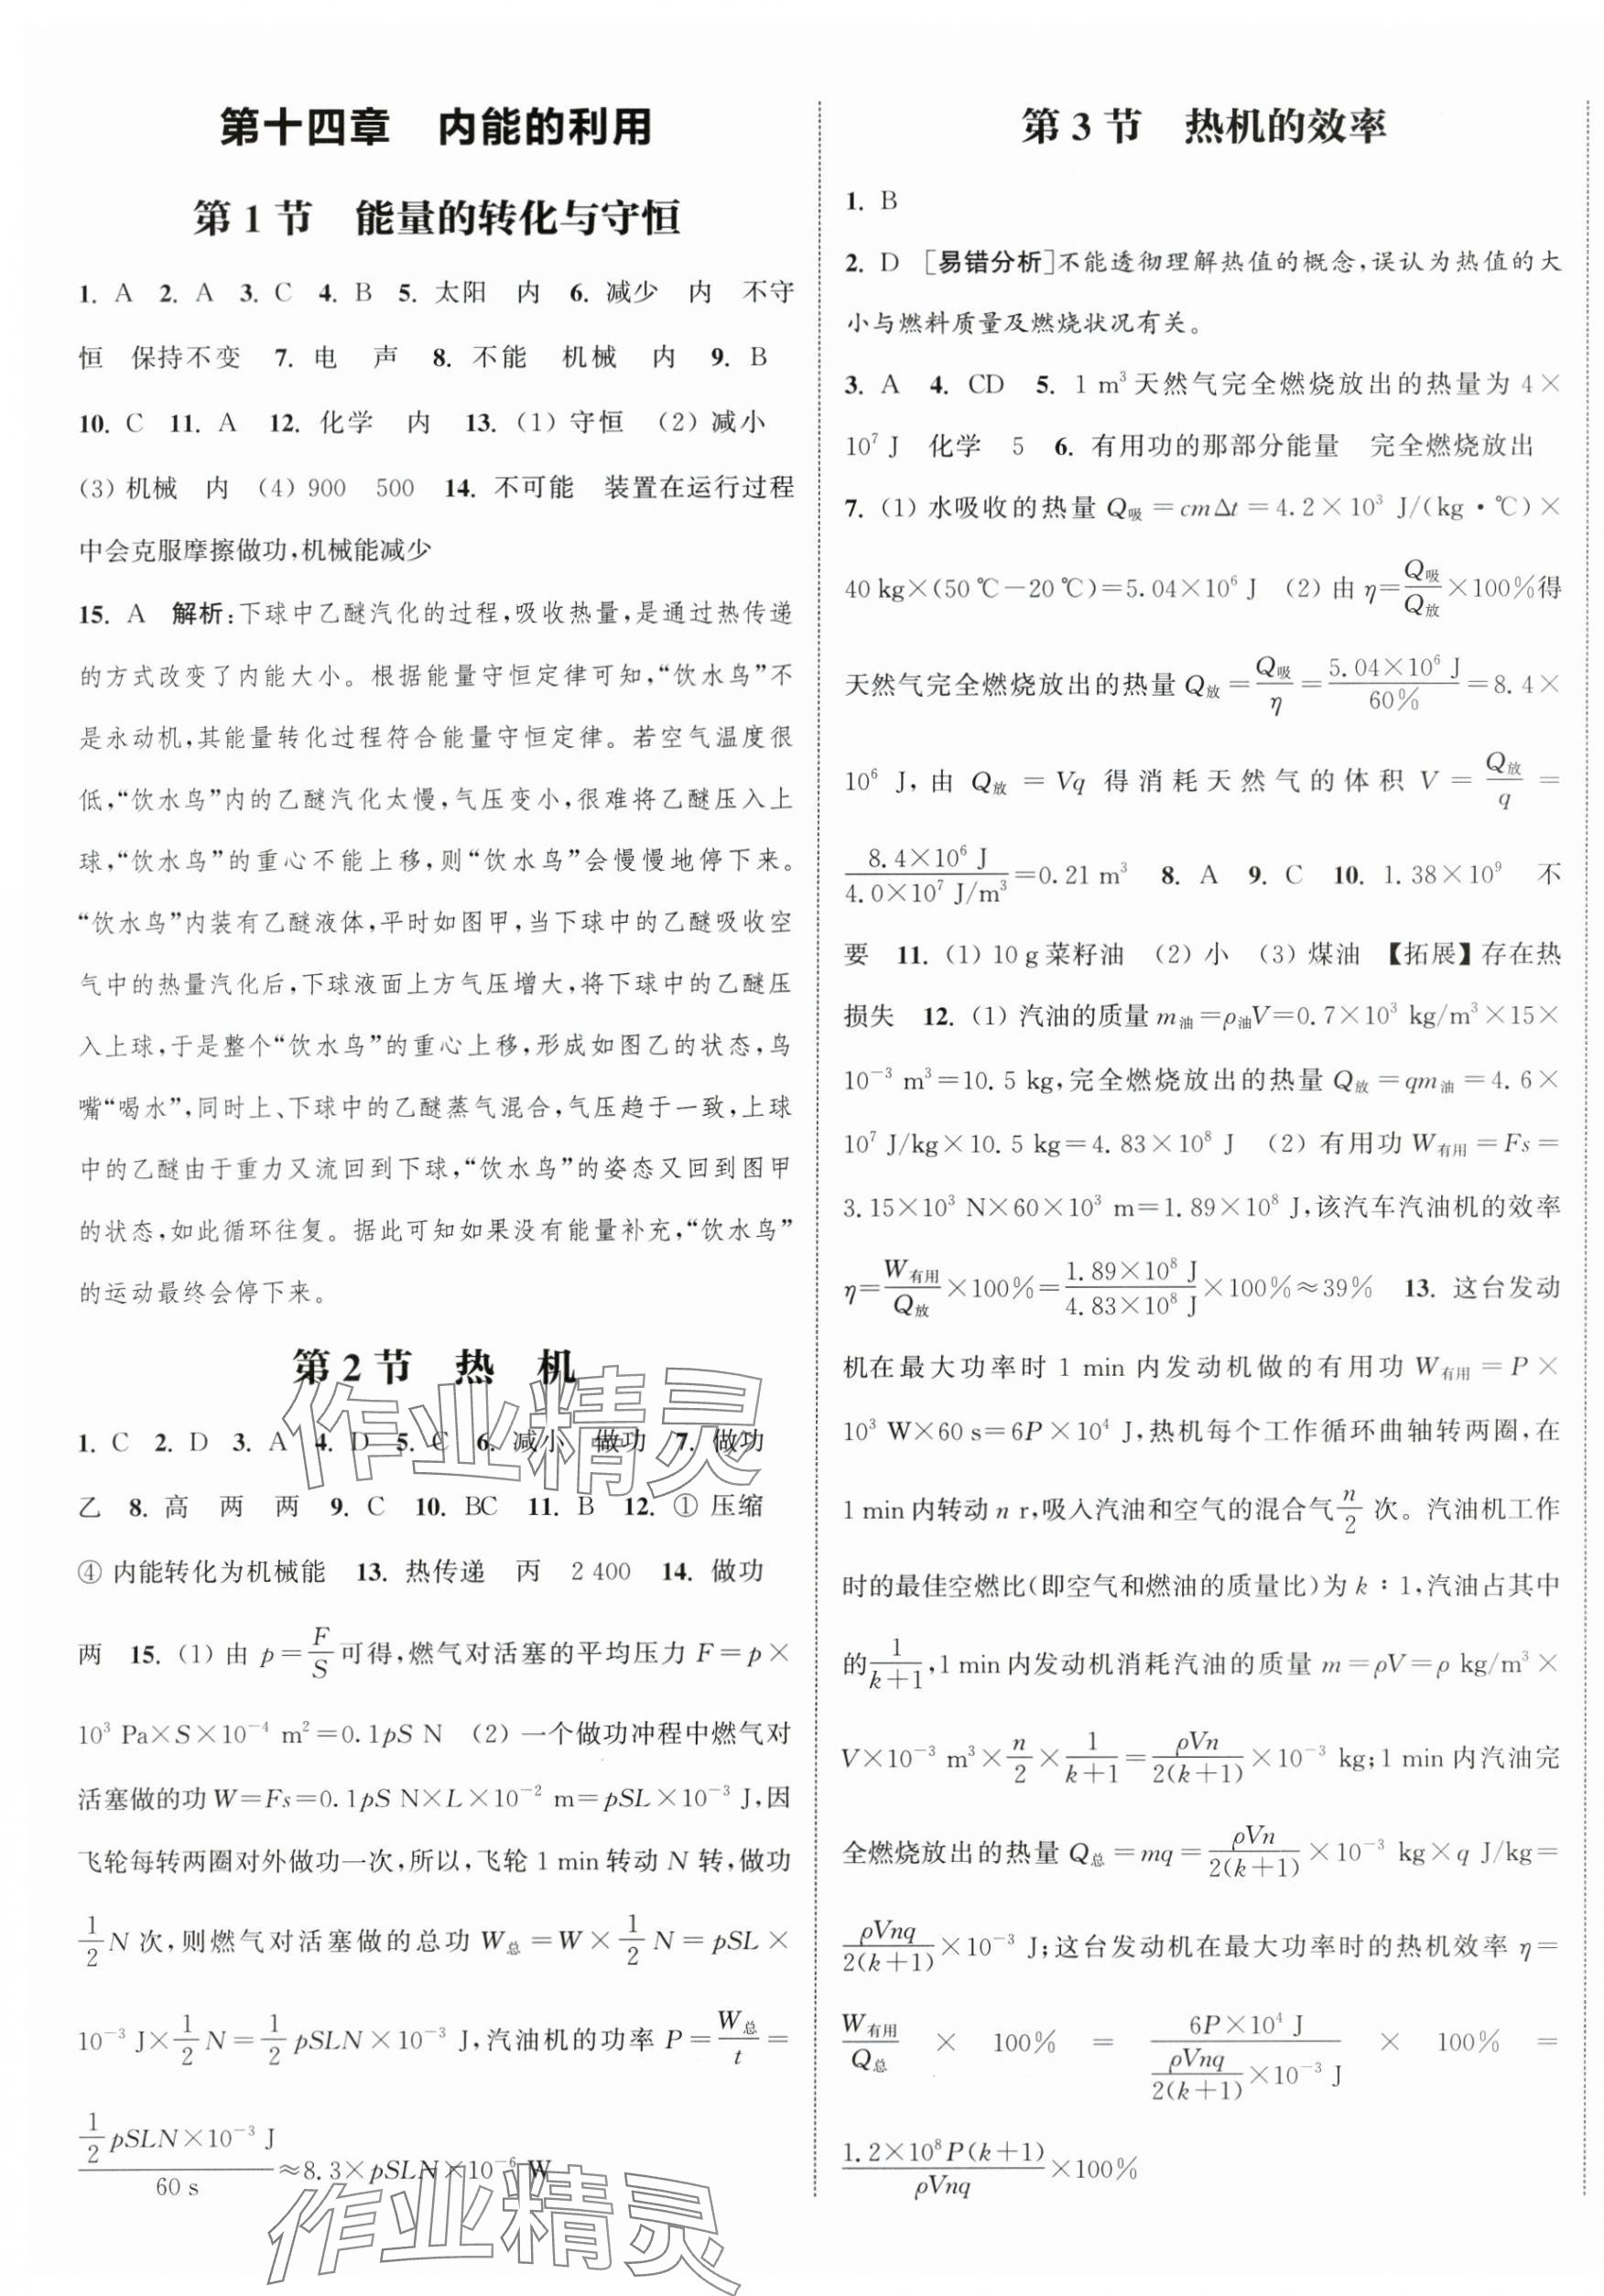 第十四章　内能的利用
第 1 节　能量的转化与守恒
1. A　2. A　3. C　4. B　5. 太阳　内　6. 减少　内　不守
恒　保持不变　7. 电　声　8. 不能　机械　内　9. B
10. C　11. A　12. 化学　内　13. (1) 守恒　(2) 减小
(3) 机械　内　(4) 900　500　14. 不可能　装置在运行过程
中会克服摩擦做功,机械能减少
15. A　解析:下球中乙醚汽化的过程,吸收热量,是通过热传递
的方式改变了内能大小。根据能量守恒定律可知,“饮水鸟”不
是永动机,其能量转化过程符合能量守恒定律。若空气温度很
低,“饮水鸟”内的乙醚汽化太慢,气压变小,很难将乙醚压入上
球,“饮水鸟”的重心不能上移,则“饮水鸟”会慢慢地停下来。
“饮水鸟”内装有乙醚液体,平时如图甲,当下球中的乙醚吸收空
气中的热量汽化后,下球液面上方气压增大,将下球中的乙醚压
入上球,于是整个“饮水鸟”的重心上移,形成如图乙的状态,鸟
嘴“喝水”,同时上、下球中的乙醚蒸气混合,气压趋于一致,上球
中的乙醚由于重力又流回到下球,“饮水鸟”的姿态又回到图甲
的状态,如此循环往复。据此可知如果没有能量补充,“饮水鸟”
的运动最终会停下来。
第 2 节　热　机
1. C　2. D　3. A　4. D　5. C　6. 减小　做功　7. 做功
乙　8. 高　两　两　9. C　10. BC　11. B　12. ① 压缩
④ 内能转化为机械能　13. 热传递　丙　2 400　14. 做功
两　15. (1) 由 p＝F/S 可得,燃气对活塞的平均压力 F＝p×
10³ Pa×S×10⁻⁴ m²＝0.1pS N　(2) 一个做功冲程中燃气对
活塞做的功 W＝Fs＝0.1pS N×L×10⁻² m＝pSL×10⁻³ J,因
飞轮每转两圈对外做功一次,所以,飞轮 1 min 转动 N 转,做功
1/2 N 次,则燃气对活塞做的总功 W总＝W×1/2 N＝pSL×
10⁻³ J×1/2 N＝1/2 pSLN×10⁻³ J,汽油机的功率 P＝W总/t＝
(1/2 pSLN×10⁻³ J)/(60 s)≈8.3×pSLN×10⁻⁶ W
第 3 节　热机的效率
1. B
2. D　[易错分析]不能透彻理解热值的概念,误认为热值的大
小与燃料质量及燃烧状况有关。
3. A　4. CD　5. 1 m³ 天然气完全燃烧放出的热量为 4×
10⁷ J　化学　5　6. 有用功的那部分能量　完全燃烧放出
7. (1) 水吸收的热量 Q吸＝cmΔt＝4.2×10³ J/(kg·℃)×
40 kg×(50 ℃－20 ℃)＝5.04×10⁶ J　(2) 由 η＝Q吸/Q放×100%得
天然气完全燃烧放出的热量 Q放＝Q吸/η＝(5.04×10⁶ J)/60%＝8.4×
10⁶ J,由 Q放＝Vq 得消耗天然气的体积 V＝Q放/q＝
(8.4×10⁶ J)/(4.0×10⁷ J/m³)＝0.21 m³　8. A　9. C　10. 1.38×10⁹　不
要　11. (1) 10 g 菜籽油　(2) 小　(3) 煤油　【拓展】存在热
损失　12. (1) 汽油的质量 m油＝ρ油V＝0.7×10³ kg/m³×15×
10⁻³ m³＝10.5 kg,完全燃烧放出的热量 Q放＝qm油＝4.6×
10⁷ J/kg×10.5 kg＝4.83×10⁸ J　(2) 有用功 W有用＝Fs＝
3.15×10³ N×60×10³ m＝1.89×10⁸ J,该汽车汽油机的效率
η＝W有用/Q放×100%＝(1.89×10⁸ J)/(4.83×10⁸ J)×100%≈39%　13. 这台发动
机在最大功率时 1 min 内发动机做的有用功 W有用＝P×
10³ W×60 s＝6P×10⁴ J,热机每个工作循环曲轴转两圈,在
1 min 内转动 n r,吸入汽油和空气的混合气 n/2 次。汽油机工作
时的最佳空燃比(即空气和燃油的质量比)为 k∶1,汽油占其中
的 1/(k＋1),1 min 内发动机消耗汽油的质量 m＝ρV＝ρ kg/m³×
V×10⁻³ m³×n/2×1/(k＋1)＝ρVn/(2(k＋1))×10⁻³ kg;1 min 内汽油完
全燃烧放出的热量 Q总＝mq＝ρVn/(2(k＋1))×10⁻³ kg×q J/kg＝
ρVnq/(2(k＋1))×10⁻³ J;这台发动机在最大功率时的热机效率 η＝
W有用/Q总 × 100% ＝ (6P×10⁴ J)/(ρVnq/(2(k＋1))×10⁻³ J) × 100% ＝
(1.2×10⁸P(k＋1))/(ρVnq)×100%
作业精灵
作业精灵